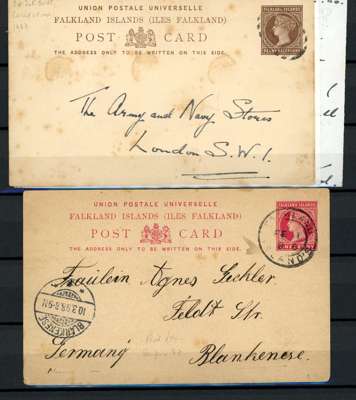 UNION POSTALE UNIVERSELLE
FALKLAND ISLANDS (ILES FALKLAND)
POST CARD
THE ADDRESS ONLY TO BE WRITTEN ON THIS SIDE.
FALKLAND ISLANDS
The Army and Navy Stores
London S.W.1.
UNION POSTALE UNIVERSELLE
FALKLAND ISLANDS (ILES FALKLAND)
POST CARD
THE ADDRESS ONLY TO BE WRITTEN ON THIS SIDE
FALKLAND ISLANDS
ONE PENNY
Fräulein Agnes
Feldt Str.
Germany Blankenese.
BLANKENESE